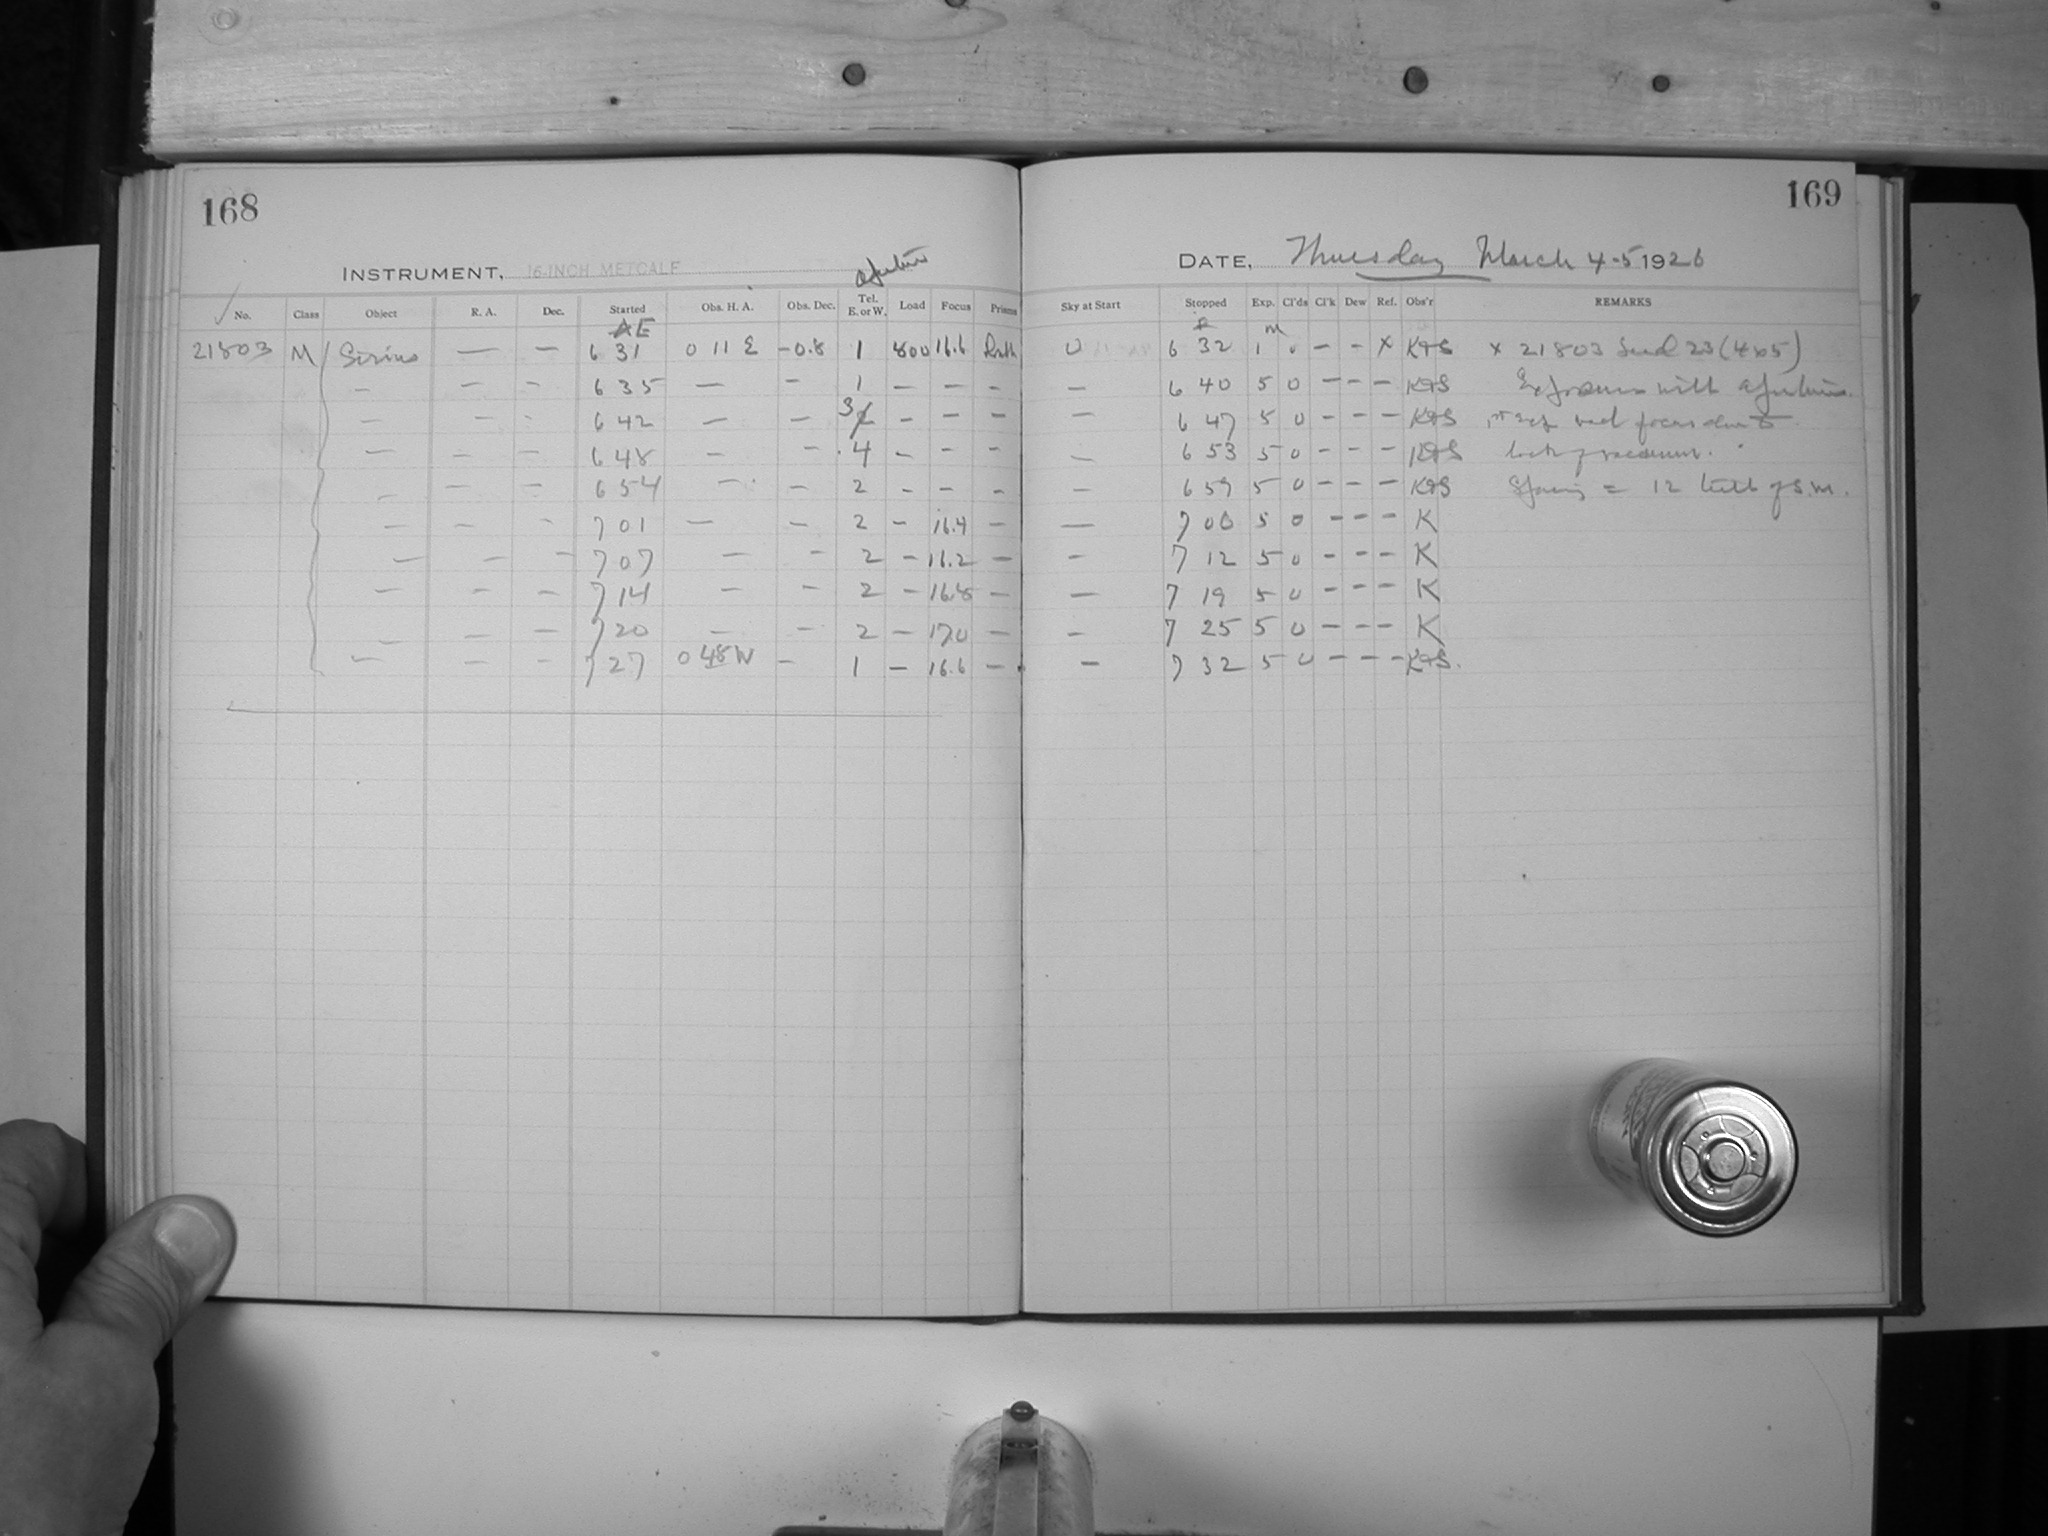 168
169
INSTRUMENT, 16-INCH METCALF
DATE, Thursday March 4-5 1926
No. Class Object R. A. Dec. Started Obs. H. A. Obs. Dec. Tel. E. or W. Load Focus Prisms Sky at Start Stopped Exp. Cl'ds Cl'k Dew Ref. Obs'r REMARKS
AE m
21803 M Sirius — — 6 31 0 11 E -0.8 1 800 16.6 Both 0 6 32 1 0 - - x K+S x 21803 Seed 23 (4x5)
— — - 6 35 — - 1 - - - — 6 40 5 0 - - - K+S Exposures with apertures
— - - 6 42 — - 3 - - - — 6 47 5 0 - - - K+S bad focus due to
— - - 6 48 - - 4 - - - — 6 53 5 0 - - - K+S lack of vacuum.
- - - 6 54 - - 2 - - - - 6 59 5 0 - - - K+S Spacing = 12 of S.M.
- - - 7 01 — - 2 - 16.4 - — 7 06 5 0 - - - K
— - - 7 07 - - 2 - 16.2 - - 7 12 5 0 - - - K
- - - 7 14 - - 2 - 16.8 - — 7 19 5 0 - - - K
- - - 7 20 - - 2 - 17.0 - - 7 25 5 0 - - - K
- - - 7 27 0 48 W - 1 - 16.6 - - 7 32 5 0 - - - K+S.